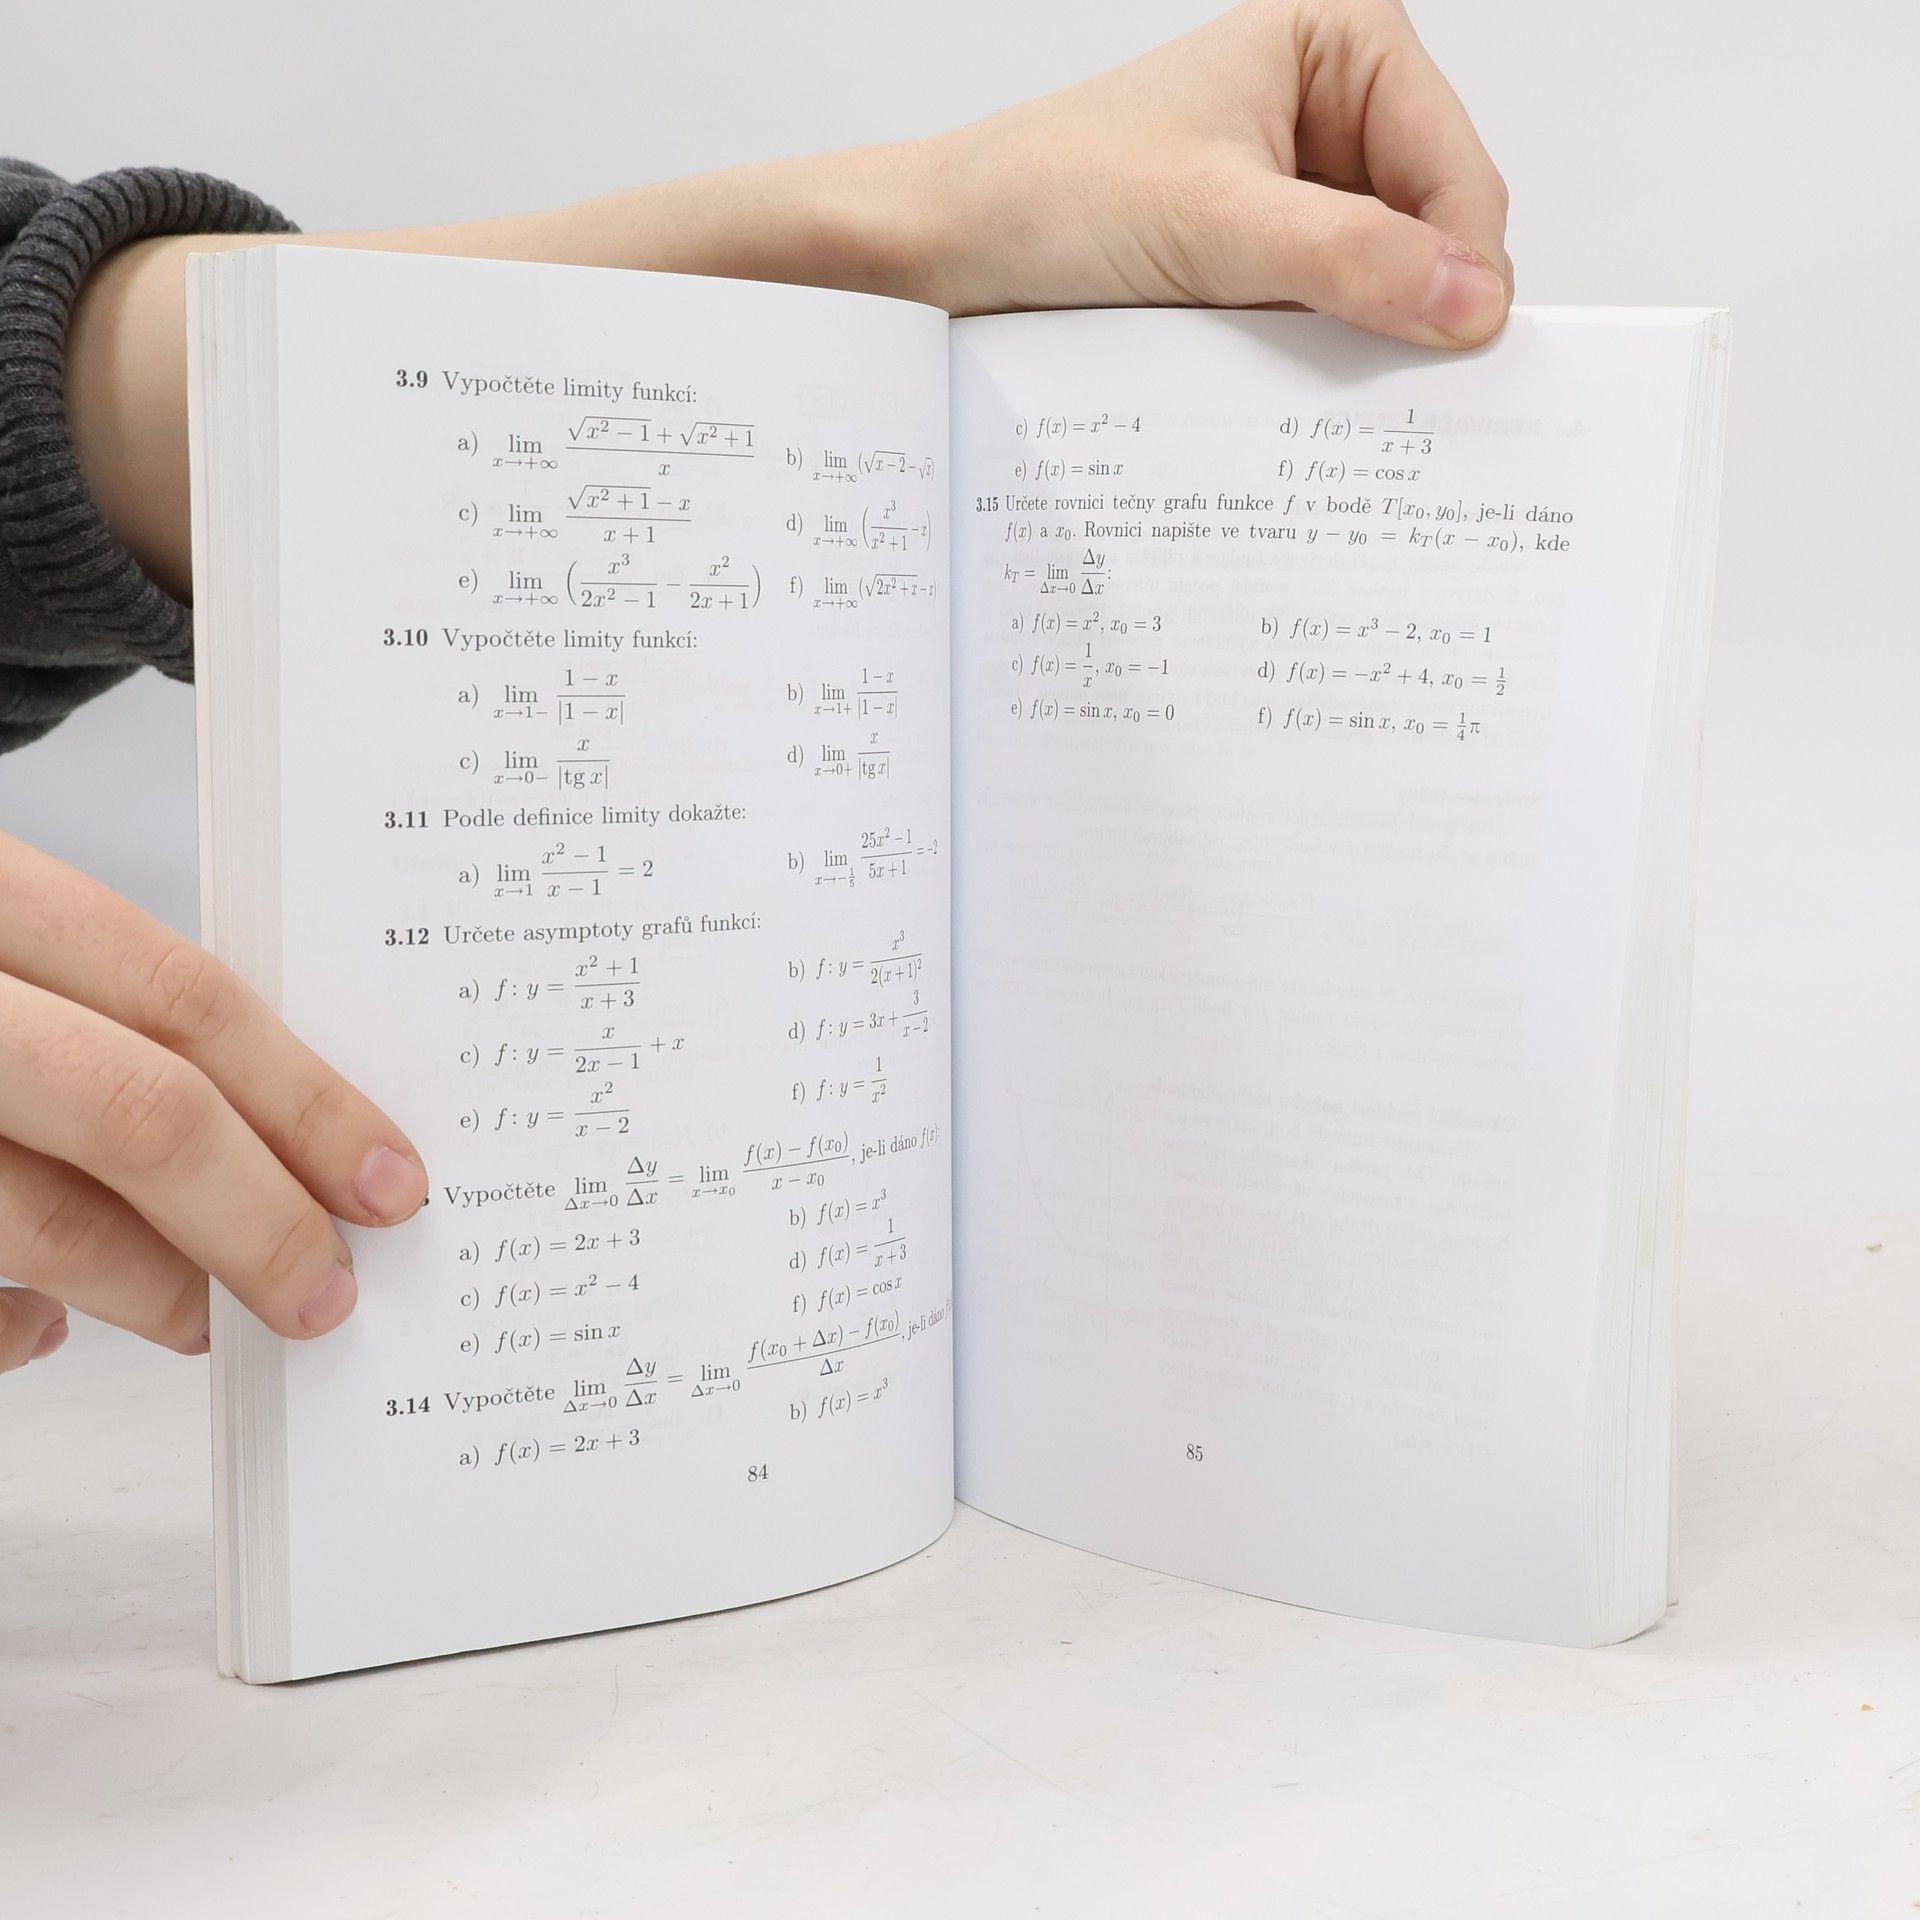 3.9 Vypočtěte limity funkcí:
a) lim x→+∞ (√(x² − 1) + √(x² + 1)) / x b) lim x→+∞ (√(x − 2) − √x)
c) lim x→+∞ (√(x² + 1) − x) / (x + 1) d) lim x→+∞ (x³/(x² + 1) − x)
e) lim x→+∞ (x³/(2x² − 1) − x²/(2x + 1)) f) lim x→+∞ (√(2x² + x) − x)
3.10 Vypočtěte limity funkcí:
a) lim x→1− (1 − x)/|1 − x| b) lim x→1+ (1 − x)/|1 − x|
c) lim x→0− x/|tg x| d) lim x→0+ x/|tg x|
3.11 Podle definice limity dokažte:
a) lim x→1 (x² − 1)/(x − 1) = 2 b) lim x→−1/5 (25x² − 1)/(5x + 1) = −2
3.12 Určete asymptoty grafů funkcí:
a) f: y = (x² + 1)/(x + 3) b) f: y = x³/(2(x + 1)²)
c) f: y = x/(2x − 1) + x d) f: y = 3x + 3/(x − 2)
e) f: y = x²/(x − 2) f) f: y = 1/x²
Vypočtěte lim Δx→0 Δy/Δx = lim x→x₀ (f(x) − f(x₀))/(x − x₀), je-li dáno f(x):
a) f(x) = 2x + 3 b) f(x) = x³
c) f(x) = x² − 4 d) f(x) = 1/(x + 3)
e) f(x) = sin x f) f(x) = cos x
3.14 Vypočtěte lim Δx→0 Δy/Δx = lim Δx→0 (f(x₀ + Δx) − f(x₀))/Δx, je-li dáno
a) f(x) = 2x + 3 b) f(x) = x³
84
c) f(x) = x² − 4 d) f(x) = 1/(x + 3)
e) f(x) = sin x f) f(x) = cos x
3.15 Určete rovnici tečny grafu funkce f v bodě T[x₀, y₀], je-li dáno
f(x) a x₀. Rovnici napište ve tvaru y − y₀ = k_T(x − x₀), kde
k_T = lim Δx→0 Δy/Δx:
a) f(x) = x², x₀ = 3 b) f(x) = x³ − 2, x₀ = 1
c) f(x) = 1/x, x₀ = −1 d) f(x) = −x² + 4, x₀ = 1/2
e) f(x) = sin x, x₀ = 0 f) f(x) = sin x, x₀ = 1/4 π
85